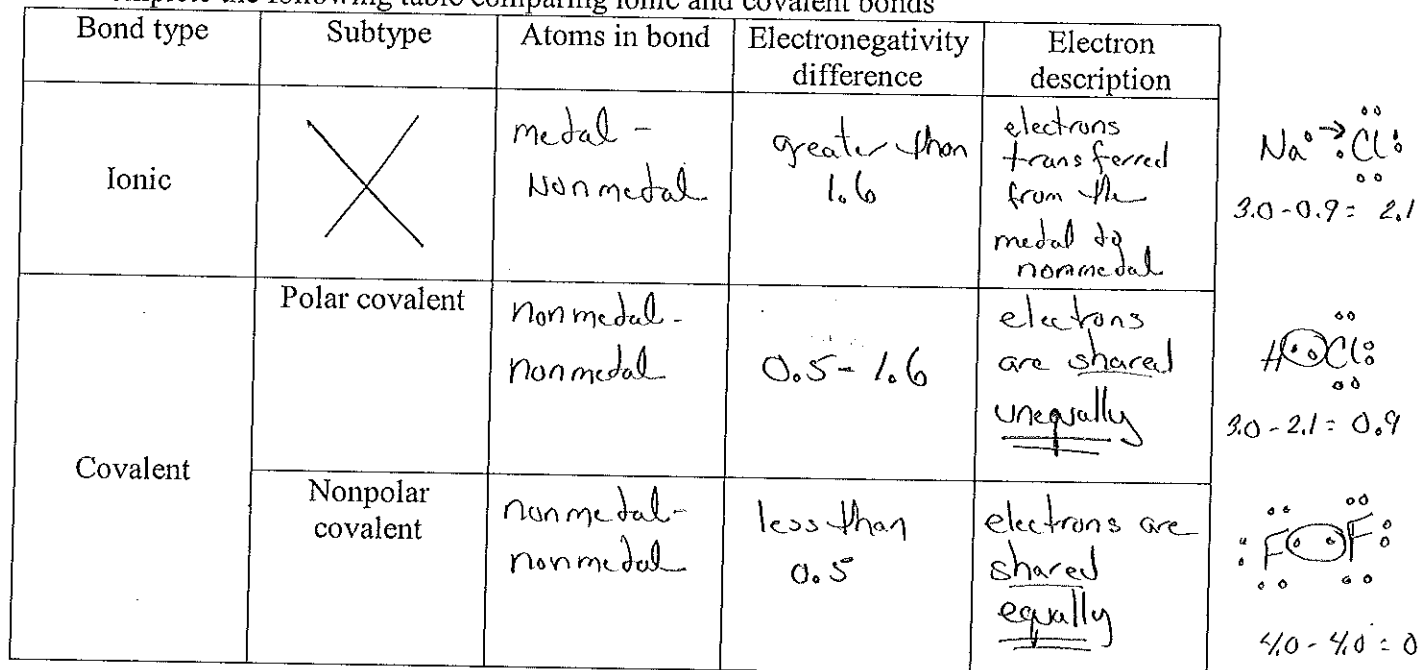 the following table comparing ionic and covalent bonds
Bond type
Subtype
Atoms in bond
Electronegativity
difference
Electron
description
Ionic
metal -
Nonmetal
greater than
1.6
electrons
transferred
from the
metal to
nonmetal
Na Cl
3.0-0.9= 2.1
Covalent
Polar covalent
nonmetal-
nonmetal
0.5-1.6
electrons
are shared
unequally
H Cl
3.0-2.1= 0.9
Nonpolar
covalent
nonmetal-
nonmetal
less than
0.5
electrons are
shared
equally
F F
4.0-4.0 = 0